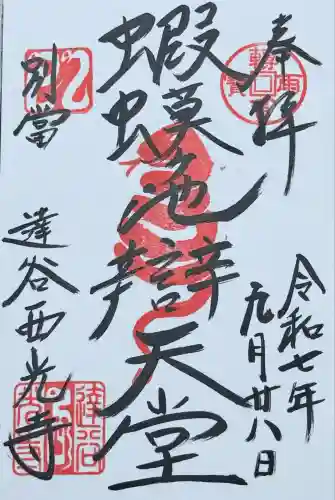 奉拝
令和七年
九月廿八日
蝦蟇池辯天堂
別當
達谷西光寺